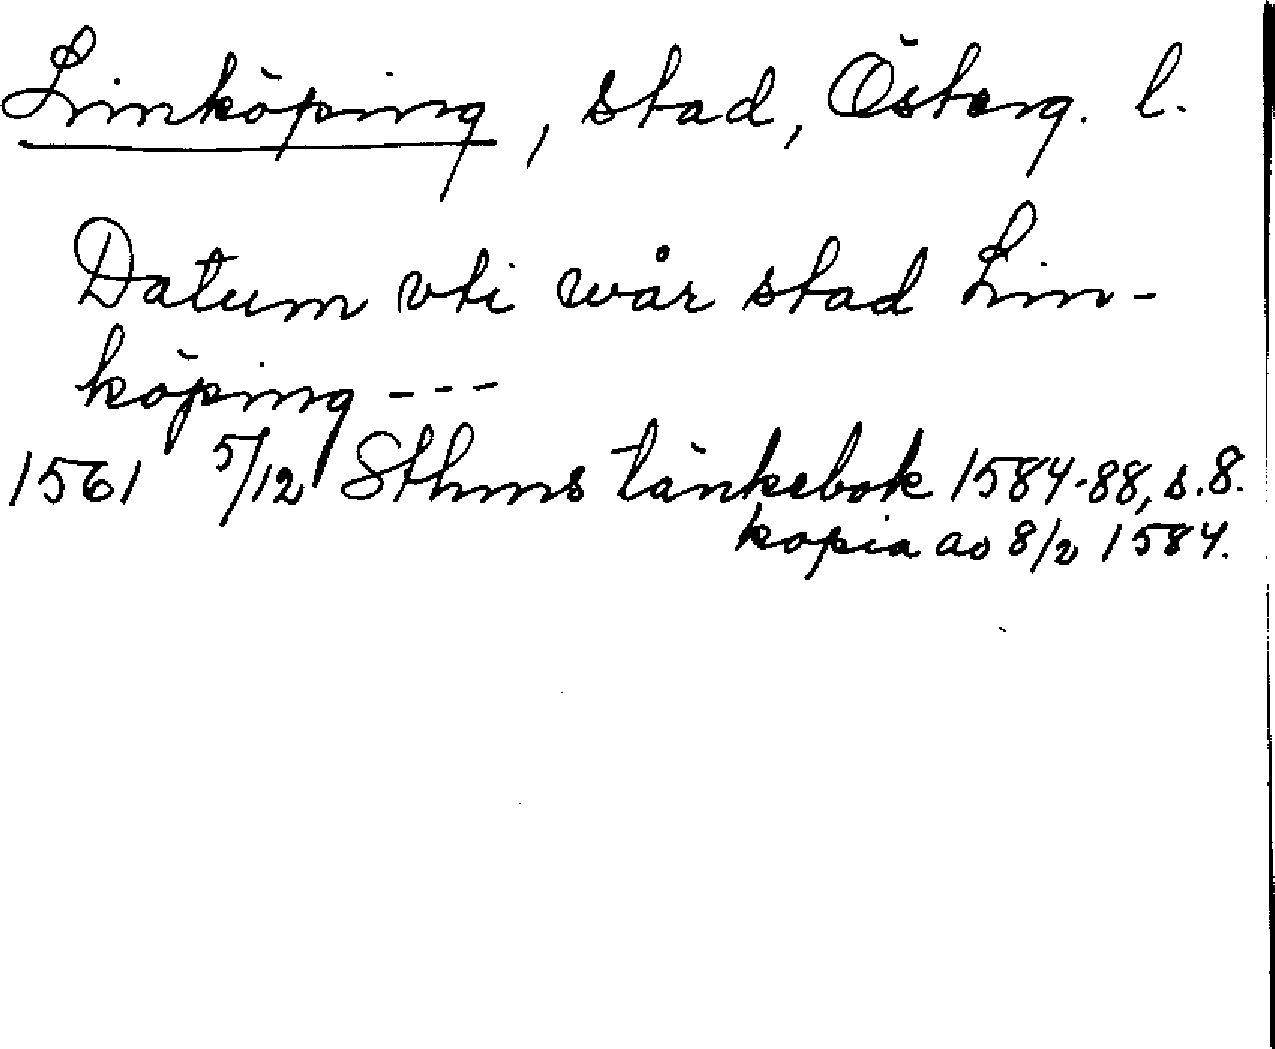 Linköping, stad, Österg. l.
Datum vti wår stad Lin-
köping ---
1561 5/12 Sthms tänkebok 1584-88, s. 8.
kopia av 8/2 1584.